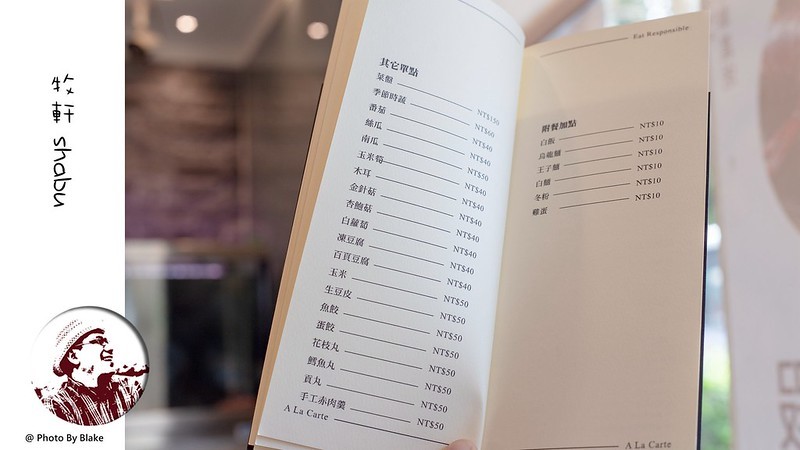 牧軒 shabu
@ Photo By Blake
其它單點
菜盤 NT$150
季節時蔬 NT$60
番茄 NT$40
絲瓜 NT$40
南瓜 NT$50
玉米筍 NT$40
木耳 NT$40
金針菇 NT$40
杏鮑菇 NT$40
白蘿蔔 NT$40
凍豆腐 NT$40
百頁豆腐 NT$40
玉米 NT$50
生豆皮 NT$50
魚餃 NT$50
蛋餃 NT$50
花枝丸 NT$50
鱈魚丸 NT$50
貢丸 NT$50
手工赤肉羹 NT$50
A La Carte
Eat Responsible.
附餐加點
白飯 NT$10
烏龍麵 NT$10
王子麵 NT$10
白麵 NT$10
冬粉 NT$10
雞蛋 NT$10
A La Carte